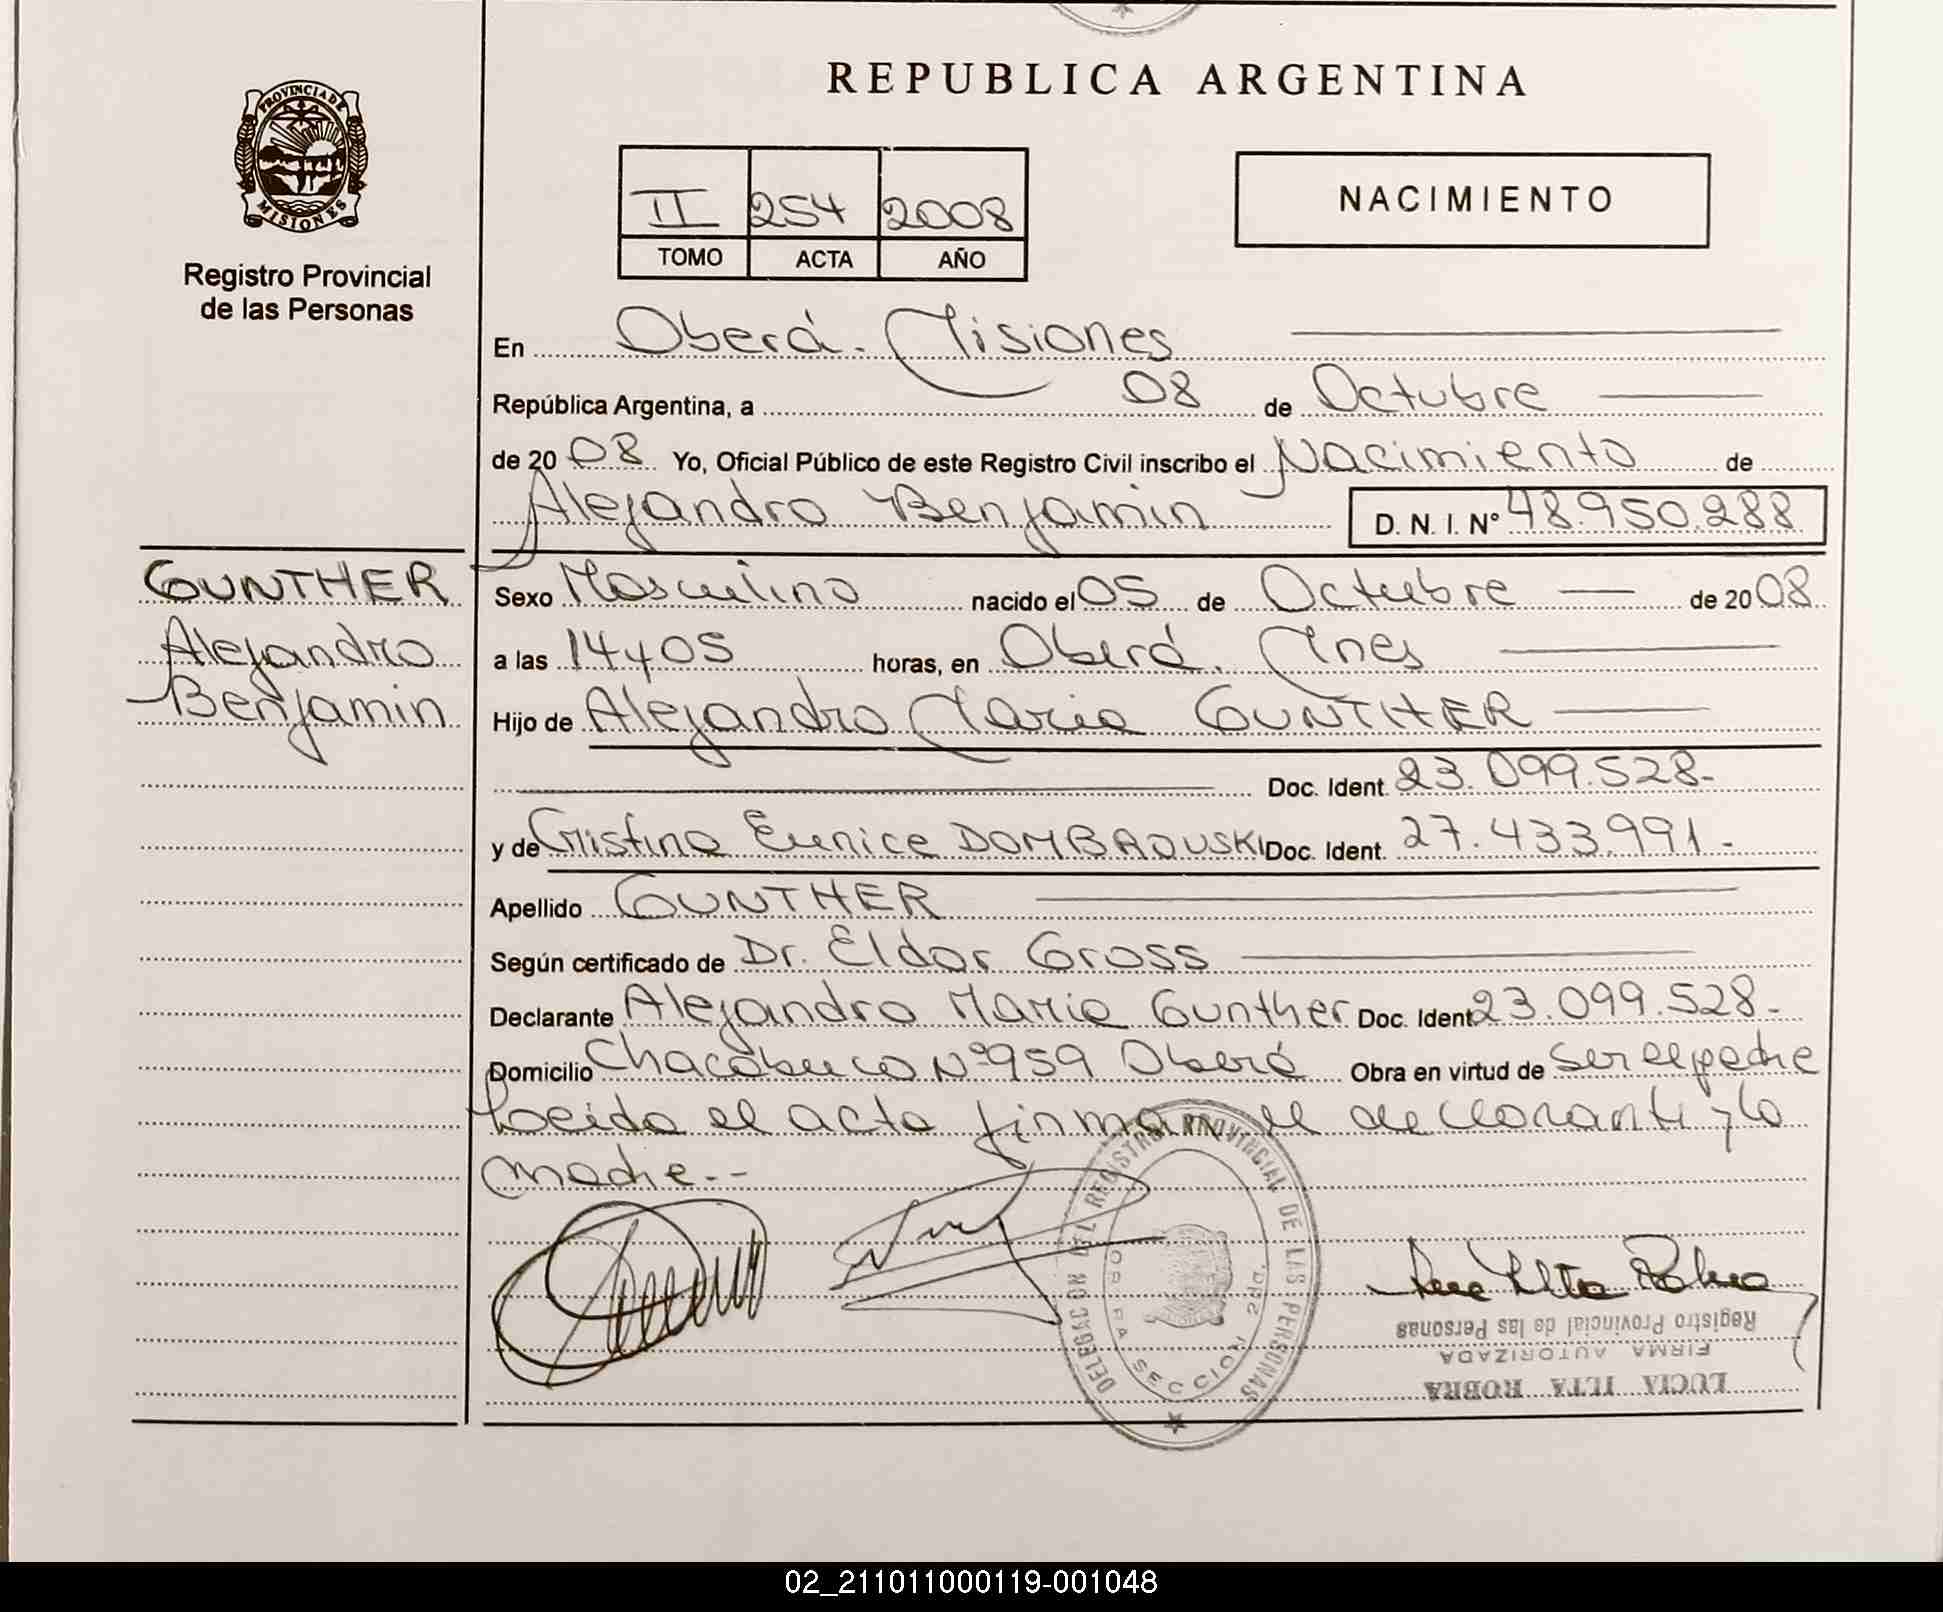 REPUBLICA ARGENTINA
PROVINCIA DE
MISIONES
Registro Provincial
de las Personas
II 254 2008
TOMO ACTA AÑO
NACIMIENTO
En Oberá. Misiones
República Argentina, a 08 de Octubre
de 20 08 Yo, Oficial Público de este Registro Civil inscribo el Nacimiento de
Alejandro Benjamin D. N. I. N° 48.950.288
GUNTHER
Alejandro
Benjamin
Sexo Masculino nacido el 05 de Octubre de 20 08
a las 14y05 horas, en Oberá. Mnes
Hijo de Alejandro Mario GUNTHER
Doc. Ident. 23.099.528-
y de Cristina Eunice DOMBROUSKI Doc. Ident. 27.433.991.-
Apellido GUNTHER
Según certificado de Dr. Eldor Gross
Declarante Alejandro Mario Gunther Doc. Ident 23.099.528-
Domicilio Chacabuco N°959 Oberá Obra en virtud de ser el padre
Leida el acta firman el declarante y la
madre.-
DELEGACION DEL REGISTRO PROVINCIAL DE LAS PERSONAS
SECCION 2da.
Registro Provincial de las Personas
FIRMA AUTORIZADA
LUCIA ILTA ROBRA
02_211011000119-001048